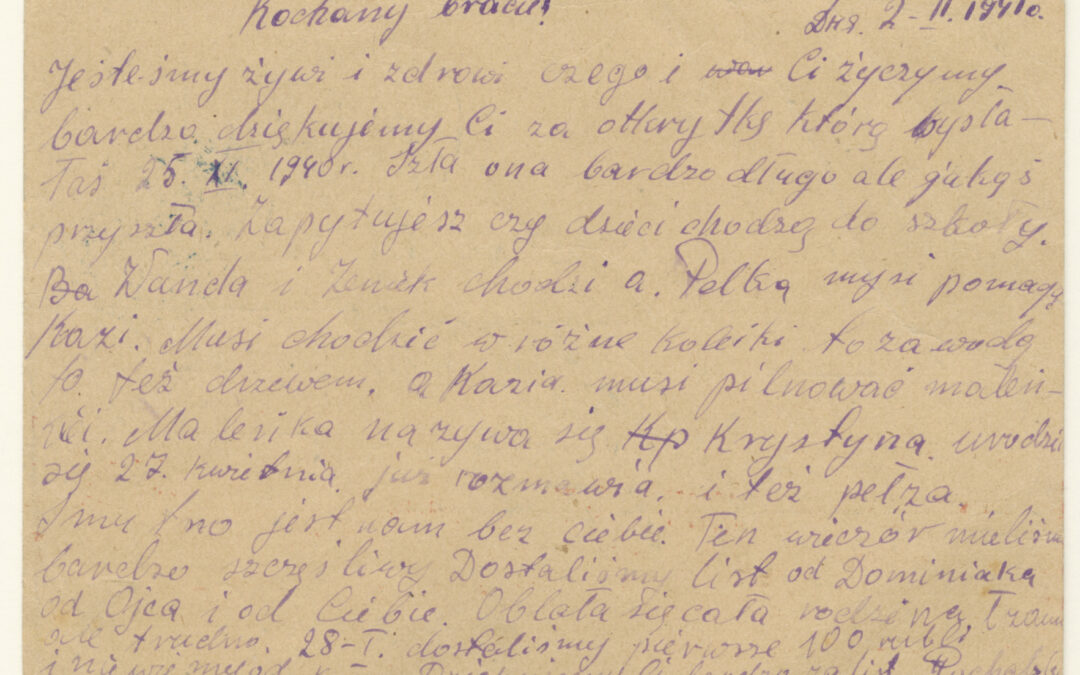 Kochany bracie!
Dnś. 2-II. 1941o.
Jesteśmy żywi i zdrowi czego i Ci życzymy
bardzo dziękujemy Ci za otkrytkę którą wysła-
łaś 25. XI. 1940r. Szła ona bardzo długo ale jakąś
przyszła. Zapytujesz czy dzieci chodzą do szkoły.
Ba Wanda i Zenek chodzi a. Pelka musi pomagą
Kazi. Musi chodzić w różne koleiki to za wodą
to też drzewem. a Kazia. musi pilnować maleń-
kéi. Maleńka nazywa się Kp Krystyna. urodzi
się 27. kwietnia. już rozmawia. i też pełza.
Smutno jest nam bez ciebie. Ten wieczór mieliśm
bardzo szczęśliwy Dostaliśmy list od Dominiaka
od Ojca i od Ciebie. Oblała się cała rodzina łzam
ale trudno. 28-I. dostaliśmy pierwsze 100 rubli
i nie wiemy od